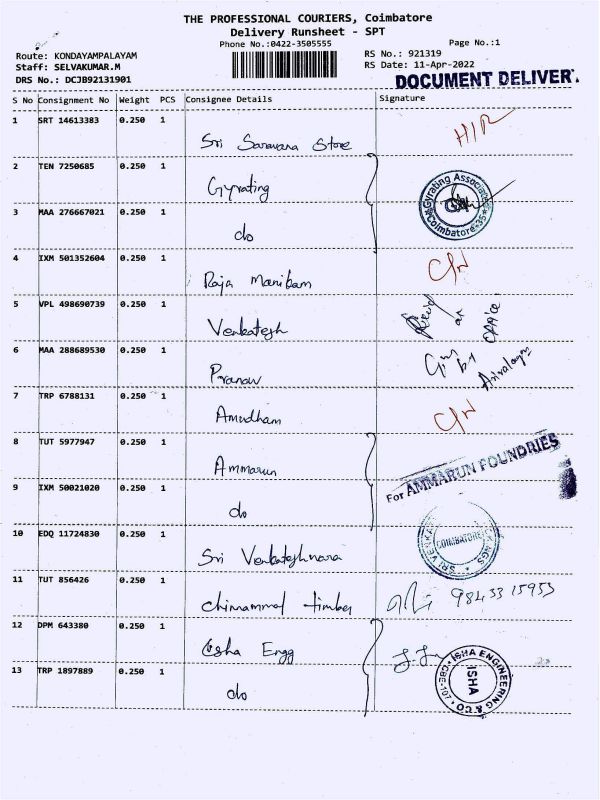 THE PROFESSIONAL COURIERS, Coimbatore
Delivery Runsheet - SPT
Phone No.:0422-3505555 Page No.:1
Route: KONDAYAMPALAYAM RS No.: 921319
Staff: SELVAKUMAR.M RS Date: 11-Apr-2022
DRS No.: DCJB92131901 DOCUMENT DELIVER
S No Consignment No Weight PCS Consignee Details Signature
1 SRT 14613383 0.250 1
Sri Saravana Store
2 TEN 7250685 0.250 1
Gyrating
Gyrating Associates
Coimbatore-35
3 MAA 276667021 0.250 1
do
4 IXM 501352604 0.250 1
Raja Manikam
5 VPL 498690739 0.250 1
Venkatesh
6 MAA 288689530 0.250 1
Pranav
7 TRP 6788131 0.250 1
Amudham
8 TUT 5977947 0.250 1
Ammarun
For AMMARUN FOUNDRIES
9 IXM 50021020 0.250 1
do
10 EDQ 11724830 0.250 1
Sri Venkateshwara
COIMBATORE
11 TUT 856426 0.250 1
Chinnammal timber 98433 15953
12 DPM 643380 0.250 1
Esha Engg
ISHA ENGINEERING & CO
ISHA
CBE-107
13 TRP 1897889 0.250 1
do